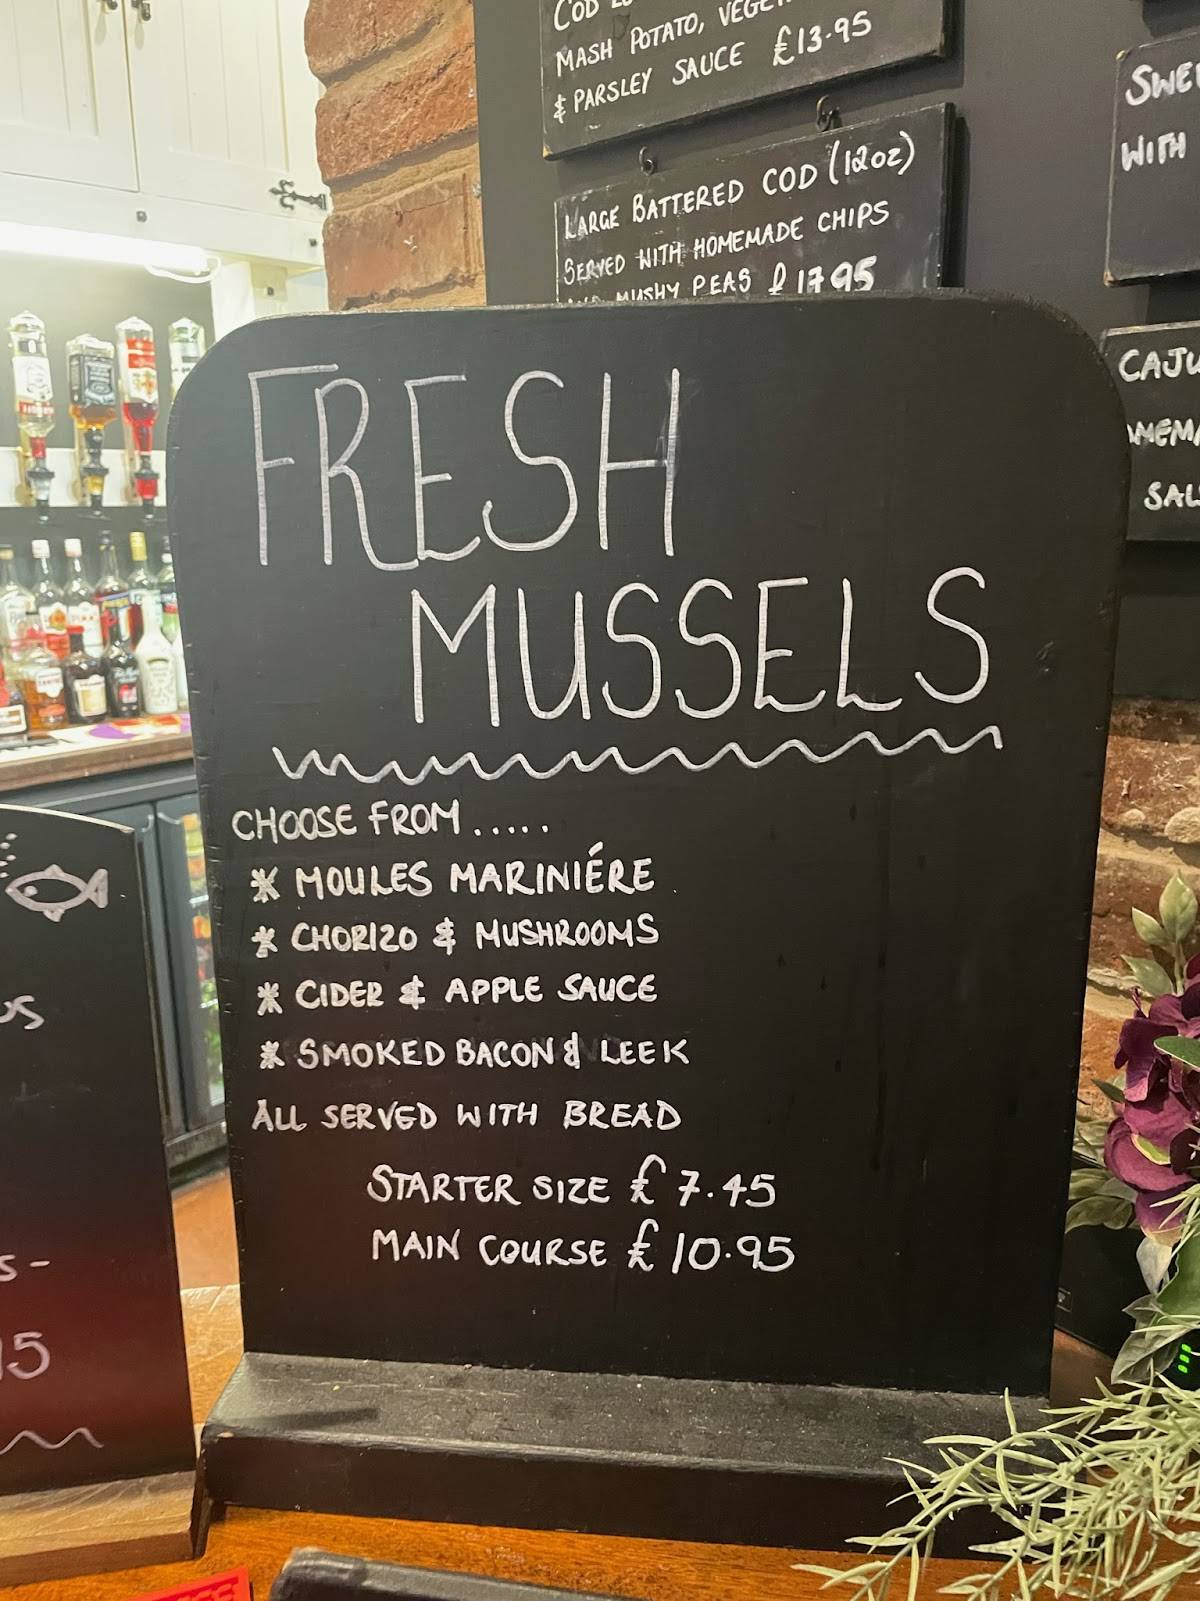 COD
MASH POTATO,
& PARSLEY SAUCE £13.95
LARGE BATTERED COD (12oz)
SERVED WITH HOMEMADE CHIPS
MUSHY PEAS £17.95
WITH
FRESH
MUSSELS
CHOOSE FROM.....
* MOULES MARINIÉRE
* CHORIZO & MUSHROOMS
* CIDER & APPLE SAUCE
* SMOKED BACON & LEEK
ALL SERVED WITH BREAD
STARTER SIZE £7.45
MAIN COURSE £10.95